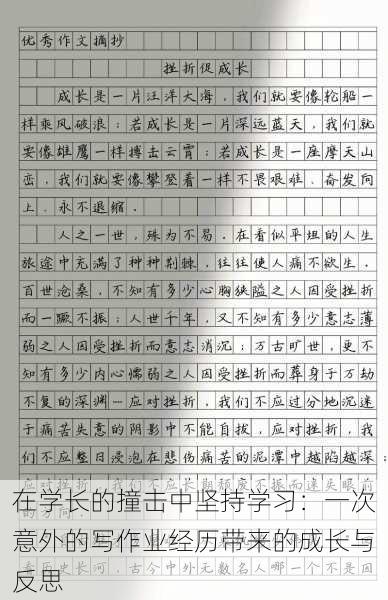 优秀作文摘抄
挫折促成长
成长是一片汪洋大海，我们就要像轮船一
样乘风破浪；若成长是一片深远蓝天，我们就
要像雄鹰一样搏击云霄；若成长是一座摩天山
峦，我们就要像攀登着一样不畏艰难、奋发向
上、永不退缩．
人之一世，殊为不易．在看似平坦的人生
旅途中充满了种种荆棘，往往使人痛不欲生．
百世沧桑，不知有多少心胸狭隘之人因受挫折
而一蹶不振；人世千年，又不知有多少意志薄
弱之人因受挫折而意志消沉；万古旷世，更不
知有多少内心懦弱之人因受挫折而葬身于万劫
不复的深渊…应对挫折，我们不应过分地沉迷
于痛苦失意的阴影中不能自拔，应对挫折，我
们不应整日浸泡在悲伤痛苦的泥潭中越陷越深；
应对挫折，我们不应长期颓废不振而迷失眼前
在学长的撞击中坚持学习：一次
意外的写作业经历带来的成长与
反思
历史长河，古今中外无数名人哪一个不是因